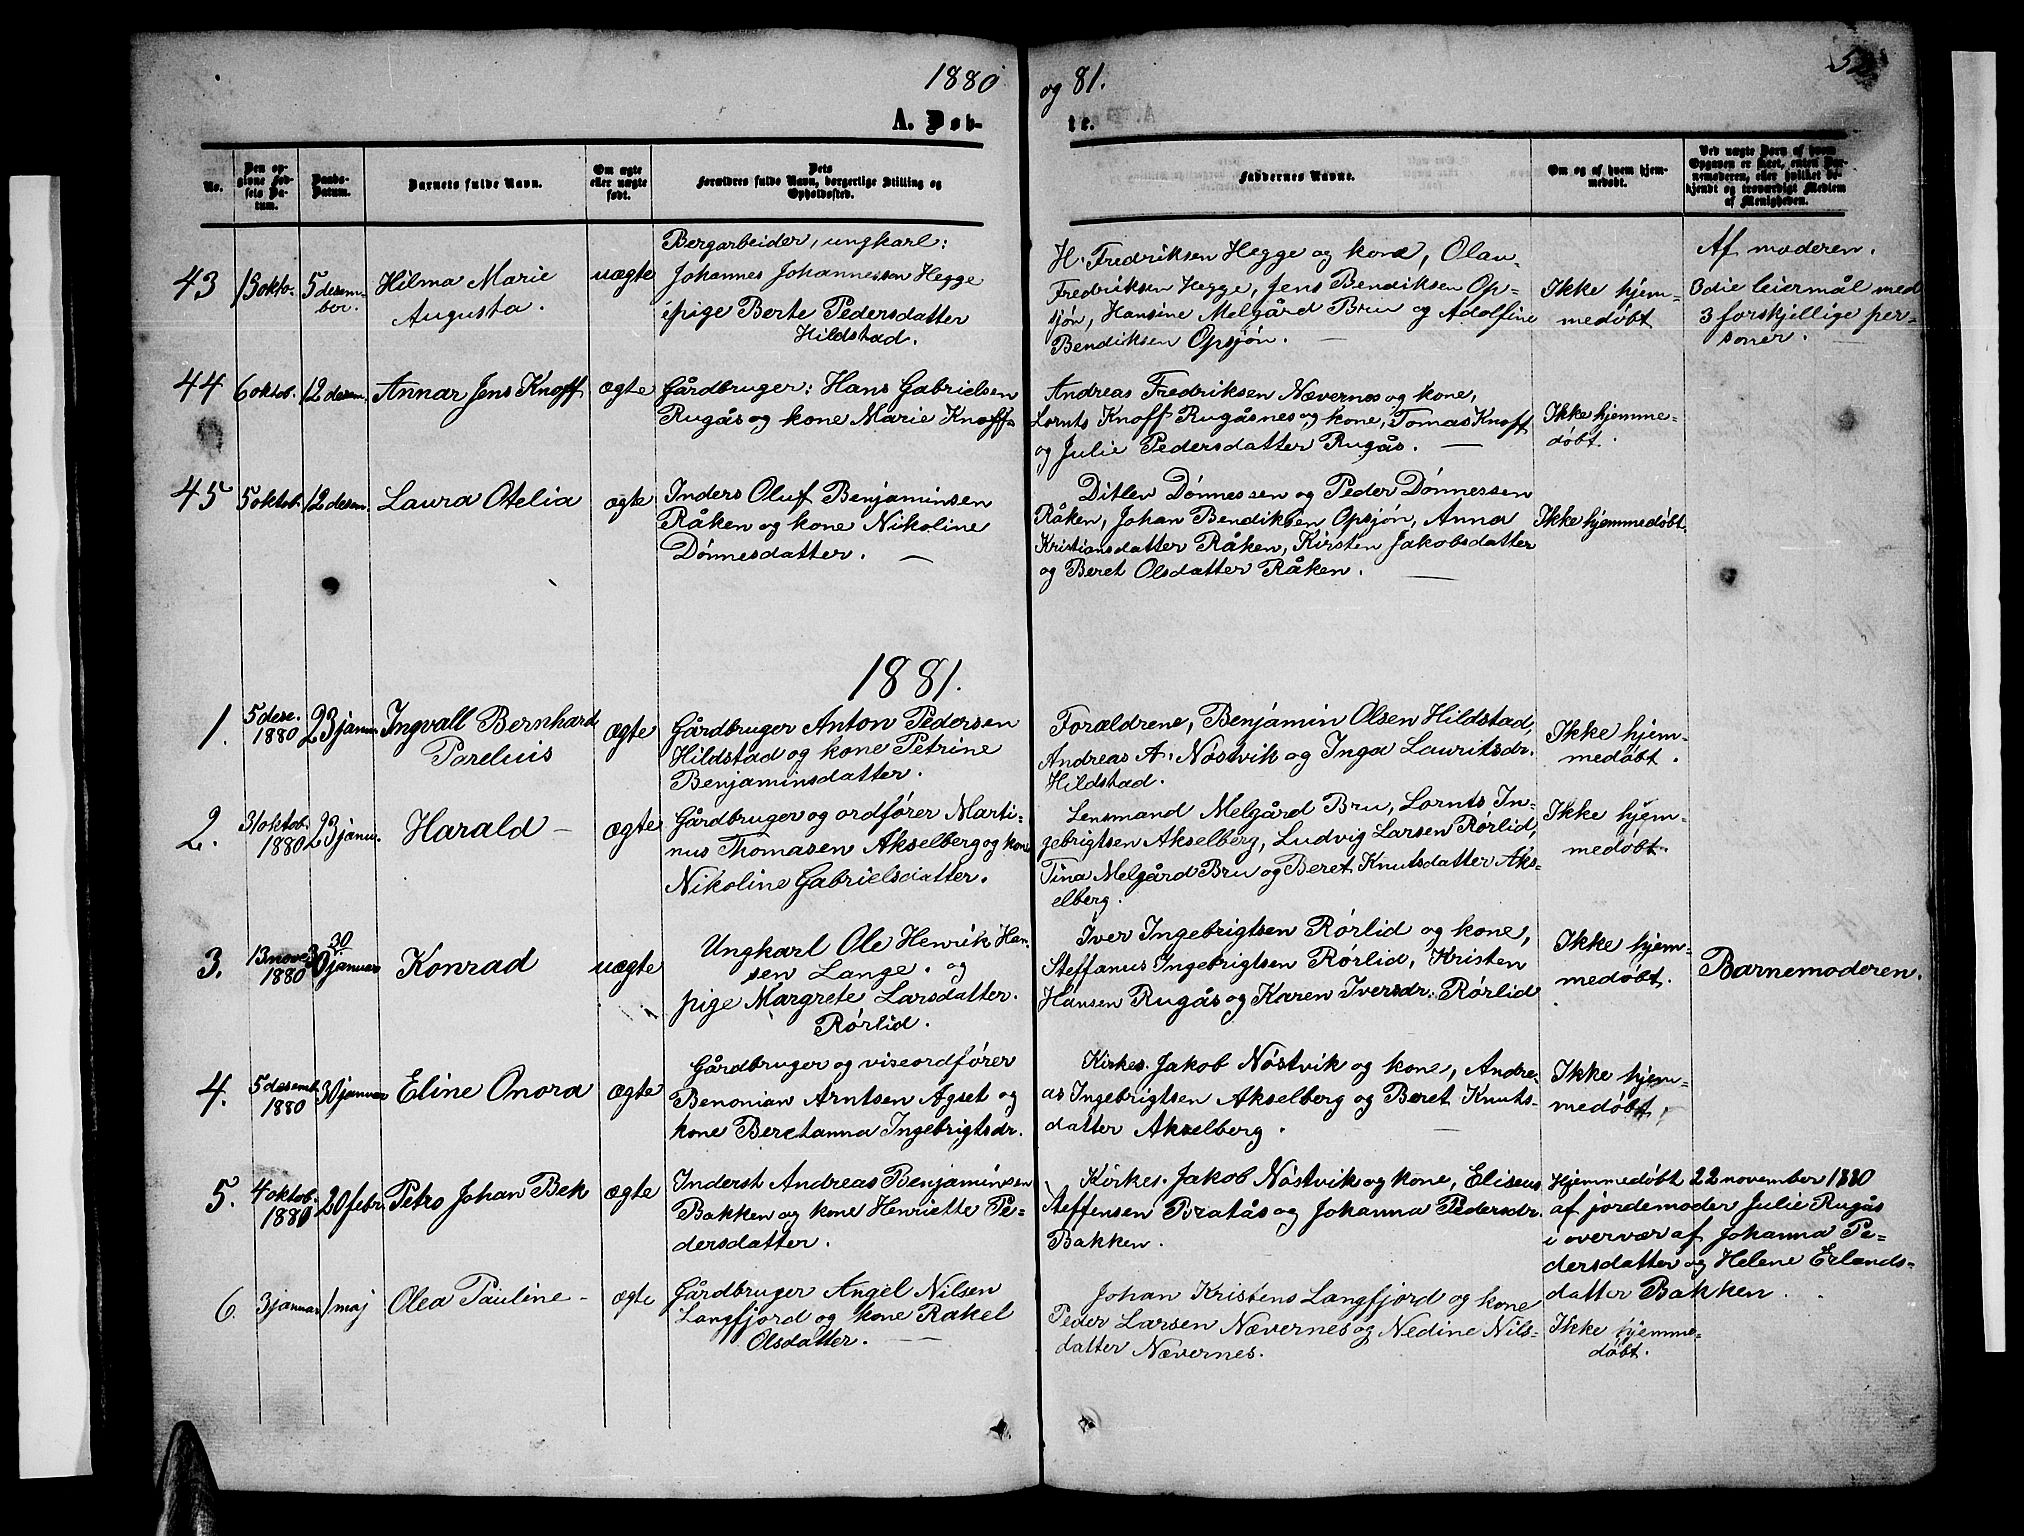 1880 og 81.
52
A. Døb-
te.
No.
Den op-
givne Fød-
sels Da-
tum.
Daabs-
Datum.
Barnets fulde Navn.
Om ægte
eller uægte
født.
Dets
Forældres fulde Navn, borgerlige Stilling og
Opholdssted.
Faddernes Navne.
Om og af hvem hjem-
medøbt.
Ved uægte Børn af hvem
Opgaven er sket, enten Bar-
nemoderen, eller hvilket be-
kjendt og troværdigt Medlem
af Menigheden.
43
13 okto.
5 desem-
ber.
Hilma Marie
Augusta.
uægte
Bergarbeider, ungkarl:
Johannes Johannessen Hegge
& pige Berte Pedersdatter
Hildstad.
H. Fredriksen Hegge og kone, Olau-
Fredriksen Hegge, Jens Bendiksen Op-
sjón, Hansine Melgård Bru og Adolfine
Bendiksen Opsjón. —
Ikke hjem-
medøbt
Af moderen.
3die leiermål med
3 forskjellige per-
soner.
44
6 oktob.
12 desem.
Annar Jens Knoff
ægte
Gårdbruger: Hans Gabrielsen
Rugås og kone Marie Knoff.
Andreas Fredriksen Nævernes og kone,
Lornts Knoff Rugåsnes og kone, Tomas Knoff
og Julie Pedersdatter Rugås. —
Ikke hjemme-
døbt.
45
5 oktob.
12 desem.
Laura Otelia
ægte
Inders Oluf Benjaminsen
Råken og kone Nikoline
Dónnesdatter. —
Ditlev Dónnessen og Peder Dónnessen
Råken, Johan Bendiksen Opsjón, Anna
Kristiansdatter Råken, Kirsten Jakobsdatter
og Beret Olsdatter Råken. —
Ikke hjemmedøbt.
1881.
1.
5 dese.
1880
23 januar
Ingvall Bernhard
Parelius
ægte
Gårdbruger Anton Pedersen
Hildstad og kone Petrine
Benjaminsdatter.
Forældrene, Benjamin Olsen Hildstad,
Andreas A. Nóstvik og Inga Lauritsdr.
Hildstad.
Ikke hjem-
medøbt.
2.
31 oktob.
1880
23 janu.
Harald —
ægte
Gårdbruger og ordfórer Marti-
nus Thomasen Akselberg og kone
Nikoline Gabrielsdatter.
Lensmand Melgård Bru, Lornts In-
gebrigtsen Akselberg, Ludvig Larsen Rórlid,
Tina Melgård Bru og Beret Knutsdatter Aks-
elberg.
Ikke hjem-
medøbt.
3.
13 nove.
1880
30
30 januar
Konrad
uægte
Ungkarl Ole Henrik Han-
sen Lange. og
pige Margrete Larsdatter.
Rórlid.
Iver Ingebrigtsen Rórlid og kone,
Steffanus Ingebrigtsen Rórlid, Kristen
Hansen Rugås og Karen Iversdr. Rórlid
Ikke hjem-
medøbt.
Barnemoderen.
4.
5 desemb.
1880
30 januar
Eline Onora
ægte
Gårdbruger og viseordfórer
Benonian Arntsen Agset og
kone Beretanna Ingebrigtsdr.
Kirkes. Jakob Nóstvik og kone, Andre-
as Ingebrigtsen Akselberg og Beret Knuts-
datter Akselberg. —
Ikke hjem-
medøbt.
5.
4 oktob.
1880
20 febr.
Petro Johan Bek
ægte
Inderst Andreas Benjaminsen
Bakken og kone Henriette Pe-
dersdatter.
Kirkes. Jakob Nóstvik og kone, Eliseus
Steffensen Bratås og Johanna Pedersdr.
Bakken.
Hjemmedøbt 22 november 1880
af jordemoder Julie Rugås
i overvær af Johanna Pe-
dersdatter og Helene Erlends-
datter Bakken.
6.
3 januar
1 maj
Olea Pauline —
ægte
Gårdbruger Angel Nilsen
Langfjord og kone Rakel
Olsdatter. —
Johan Kristens Langfjord og kone
Peder Larsen Nævernes og Nedine Nils-
datter Nævernes.
Ikke hjemme-
døbt.